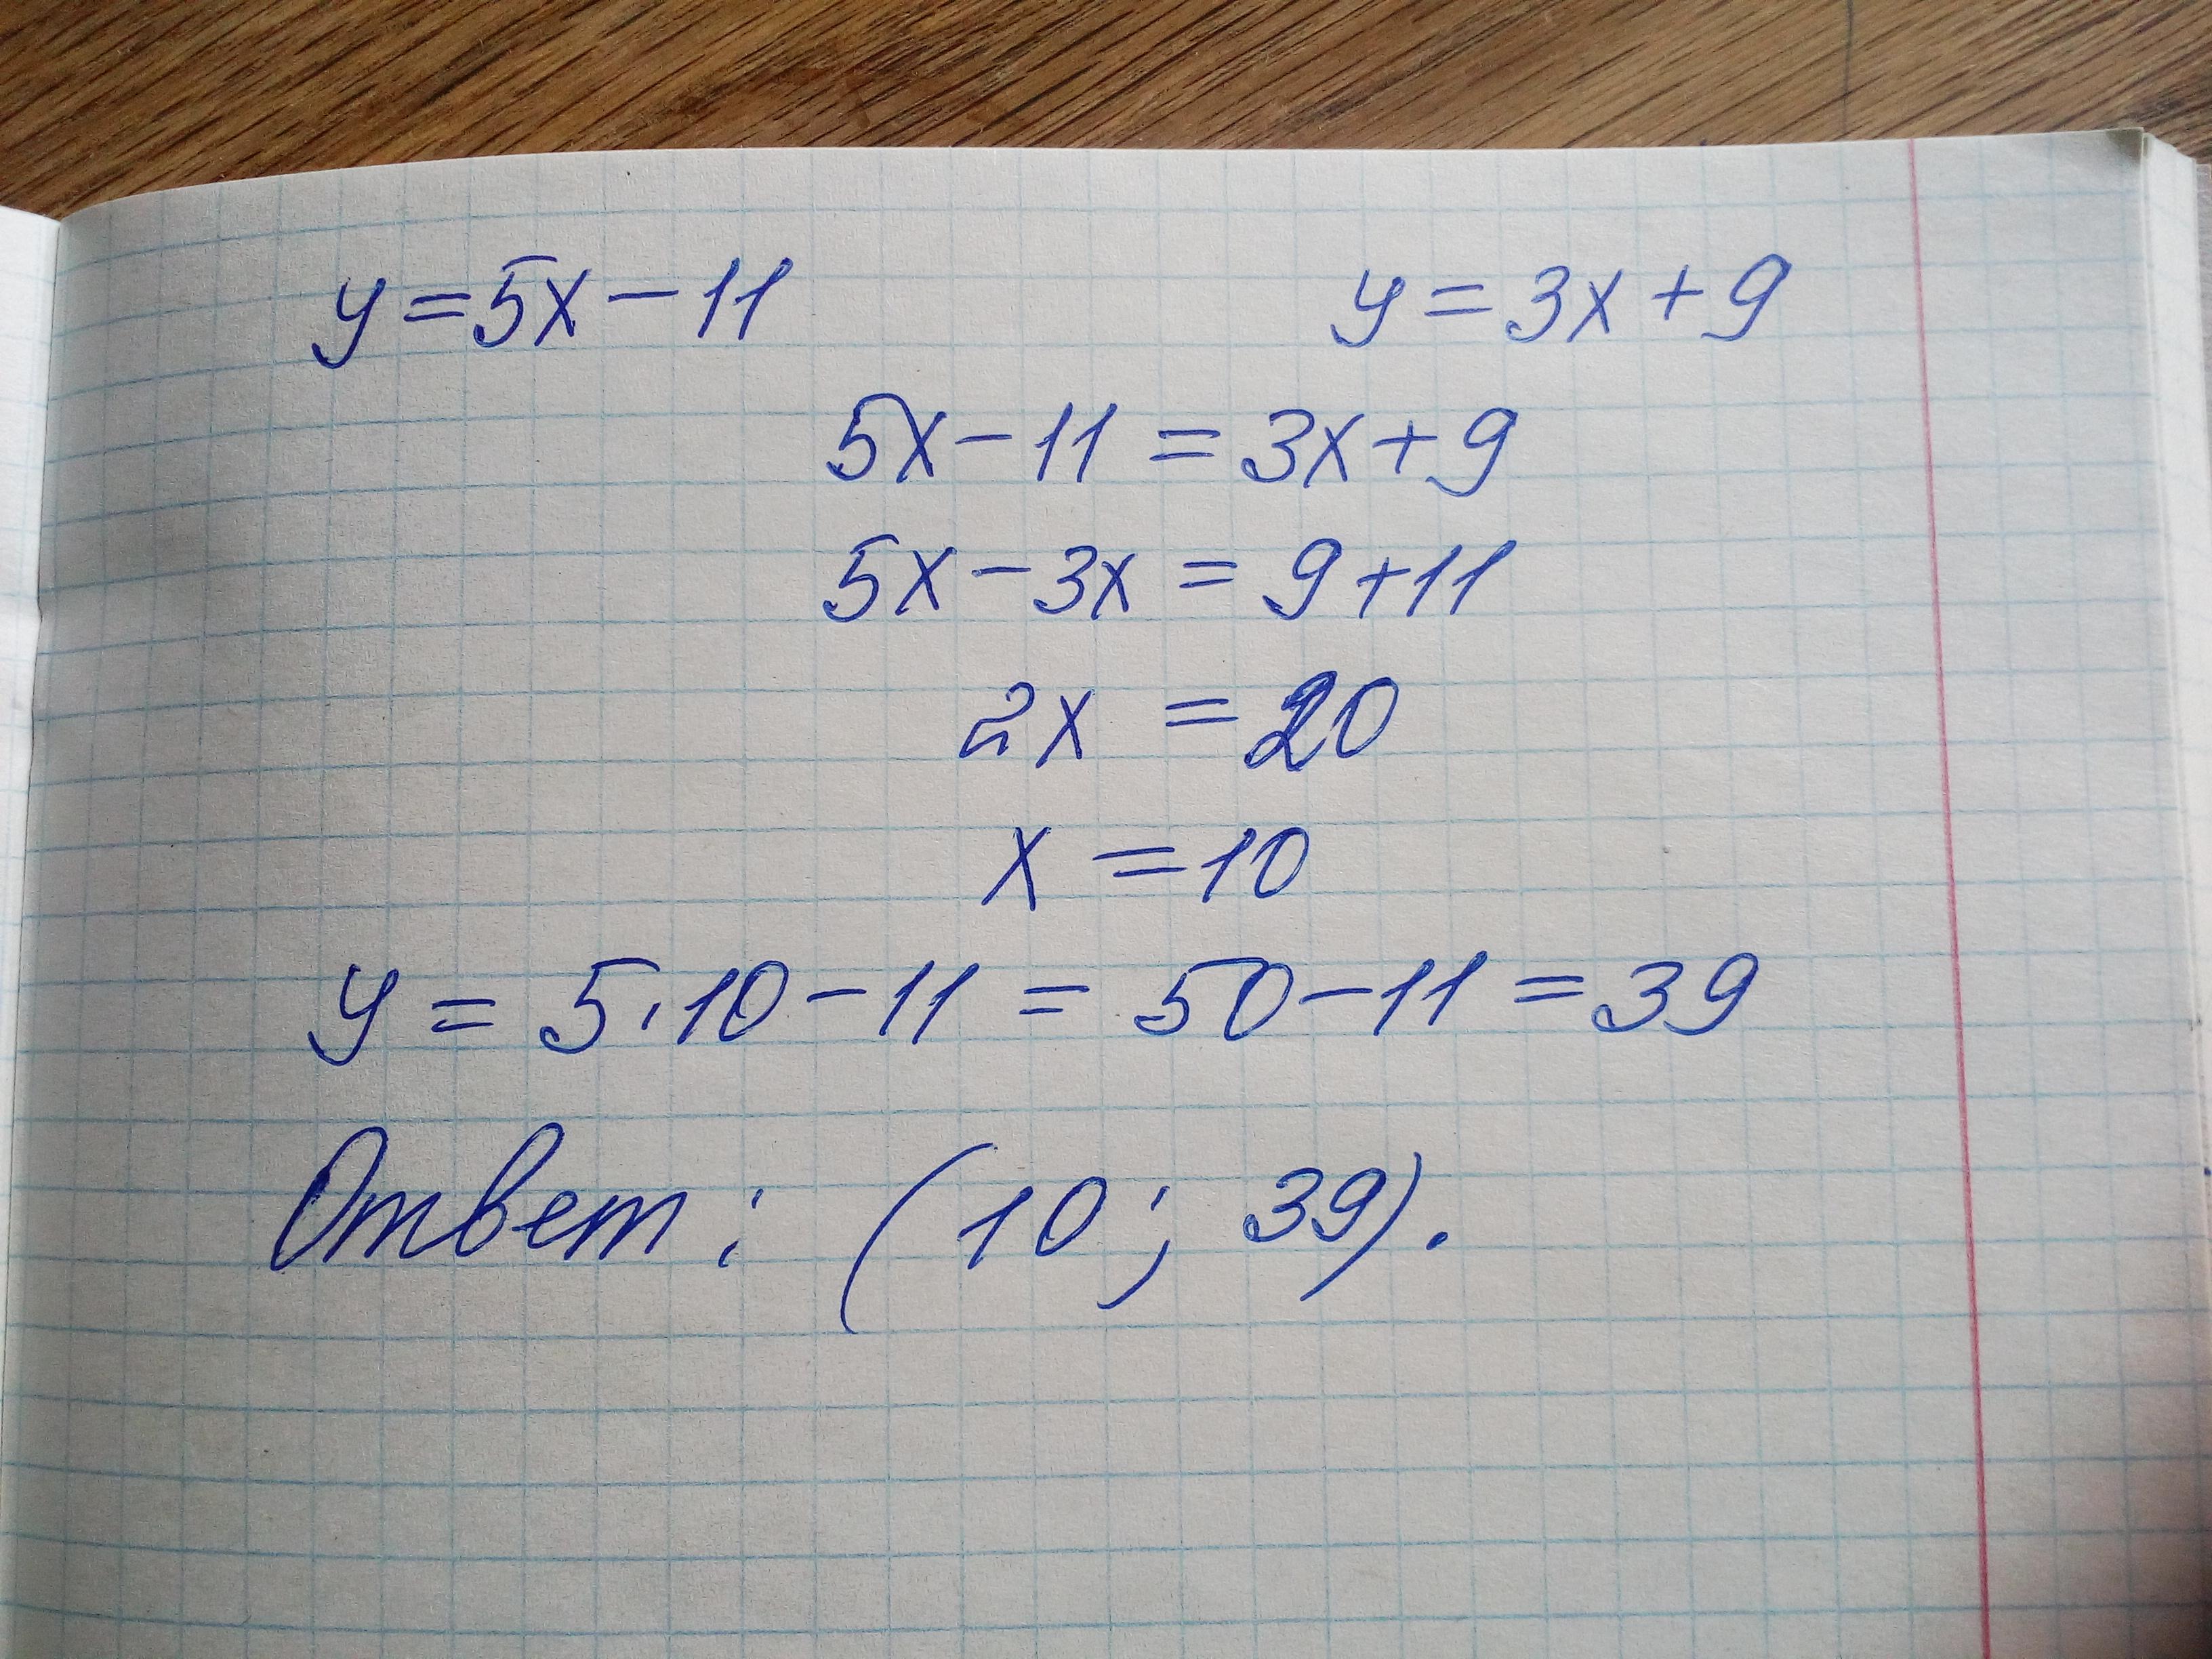 y=5x-11 y=3x+9
5x-11=3x+9
5x-3x=9+11
2x=20
x=10
y=5·10-11=50-11=39
Ответ: (10; 39).